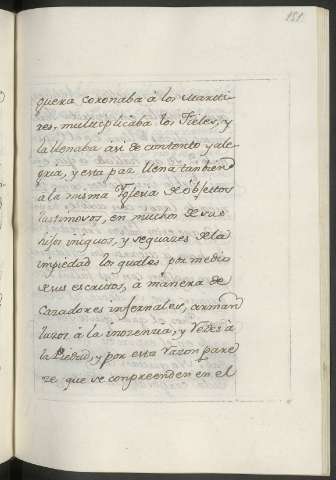 151.
quera coronaba à los Marti
res, multiplicaba los Fieles, y
la llenaba asi de contento y ale
gria, y esta paz llena tanbien
a la misma Yglesia de obgetos
lastimosos, en muchos de sus
hijos iniquos, y sequazes de la
impiedad los quales por medio
de sus escritos, à manera de
Cazadores infernales, arman
lazos à la inozenzia, y Redes a
la Piedad, y por esta razon pare
ze que se conpreenden en el